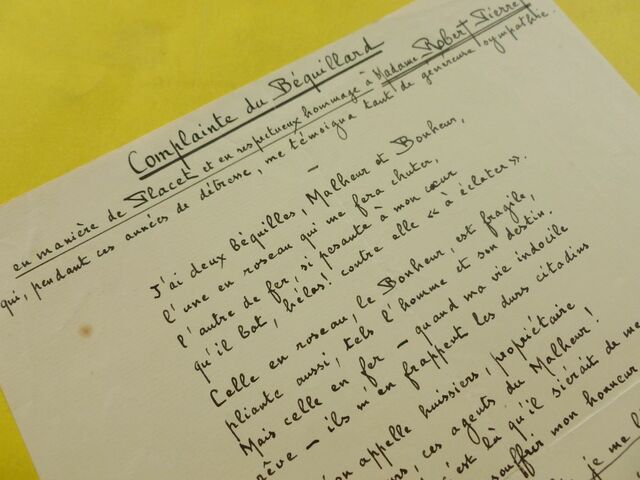 Complainte du Béquillard
en manière de Placet et en respectueux hommage à Madame Robert Pierre
qui, pendant ces années de détresse, me témoigna tant de généreuse sympathie.
J'ai deux béquilles, Malheur et Bonheur,
l'une en roseau qui me fera chuter,
l'autre de fer, si pesante à mon cœur
qu'il bat, hélas! contre elle « à éclater ».
Celle en roseau, le Bonheur, est fragile,
pliante aussi, tels l'homme et son destin.
Mais celle en fer – quand ma vie indocile
rêve – ils m'en frappent les durs citadins
on appelle huissiers, propriétaire
ces agents du Malheur!
c'est là qu'il siérait de me
souffrir mon honneur
je me l